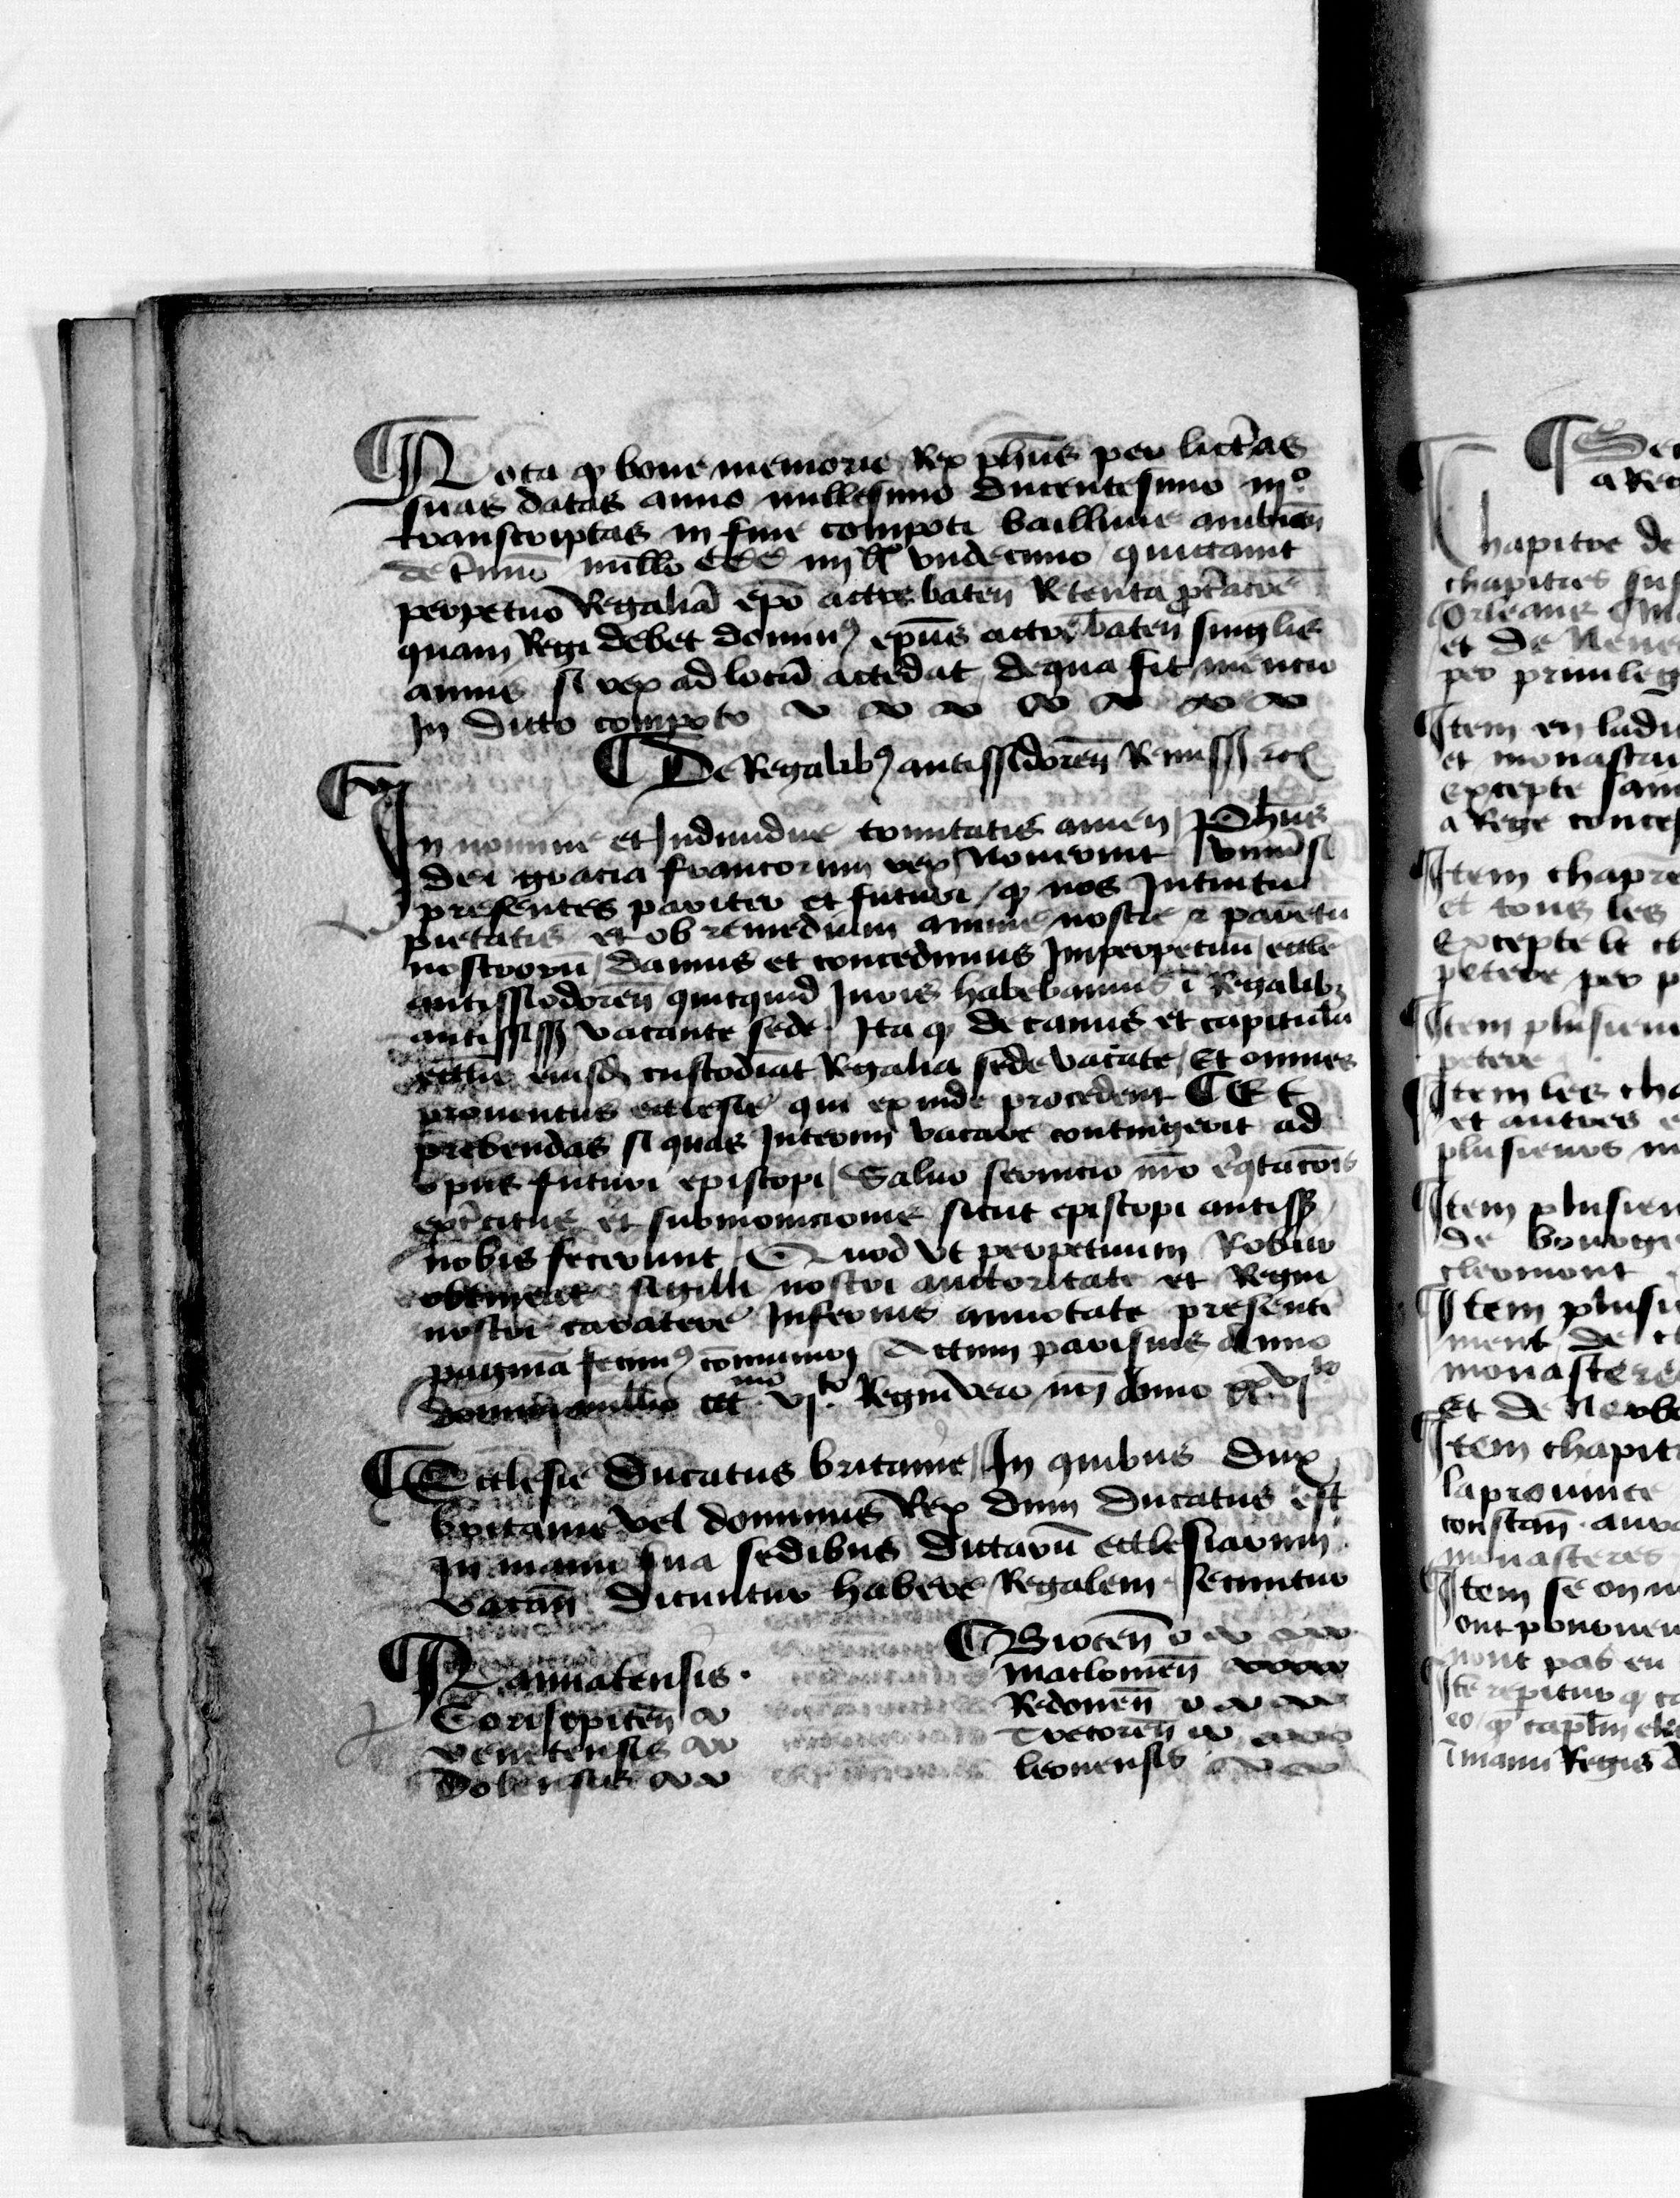 Nota qꝫ bone memorie Rex ph̄us per litt̃as
suas datas anno millesimo ducentesimo iiiº
transcriptas in fine compoti baillivie ambien̄
de t̃mino millo CCC iiii xx undecimo quictavit
perpetuo Regaliā ep̄o attrebaten̄ Retenta p̃cac̄õe
quam Regi debet dominꝰ ep̄us attrebaten̄ singulis
annis si rex ad locū accedat de qua fit mencio
In dicto compoto
De Regalibꝰ antissidoren̄ Remiss
In nomine et Individue trinitatis amen Ph̄us
dei gracia francorum rex Noverint uniṽsi
presentes pariter et futuri qꝫ nos Intuitu
pietatis et ob remedium anime nostre ⁊ parētū
nostrorū damus et concedimus Imperpetuū eccl̄e
antissiodoren̄ quicquid Juris habebamus ī Regalibꝫ
antississ vacante sede Ita qꝫ decanus et capitulū
eccl̄ie eiusd̄ custodiāt Regalia sede vacāte Et omnes
proventus ecclesie qui exinde procedent Et
prebendas si quas Interim vacare contingerit ad
opus futuri episcopi Salvo servicio nr̄o eq̃tac̄õis
exc̃itus et submonicione sicut episcopi antiss
nobis fecerunt Quod ut perpetuum Robur
obtineat sigilli nostri auctoritate et Regni
nostri caratere Inferius annotate presentē
paginā fecimꝰ com̄unirj Actum parisius anno
domini millio cc mo vjto Regni vero nrj anno xxvijto
Ecclesie Ducatus britanie In quibus Dux
britanie vel dominus Rex dum Ducatus est
In manu sua sedibus dictarū ecclesiarum
vacan̄ dicuntur habere Regalem secuntur
Nannatensis
Corisopiten̄
venetensis
Dolensis
Briocen̄
Maclomen̄
Redonen̄
Trecoren̄
leonensis
hapitre de
chapitres
et de Neve
per privileg
Item en ladi
et monastai
excepte sain
a Rege conces
Item chapr̄e
et tous les
Excepte le
petere per p
Item plusieurs
petere
Item les cha
et autres e
plusieurs m
Item plusieu
de bourge
clermont
Item plusie
ment de
monastere
Et de Nerbo
Item chapit
la province
constan̄
monasteres
Item se on
nont pas eu
ī manu Regis